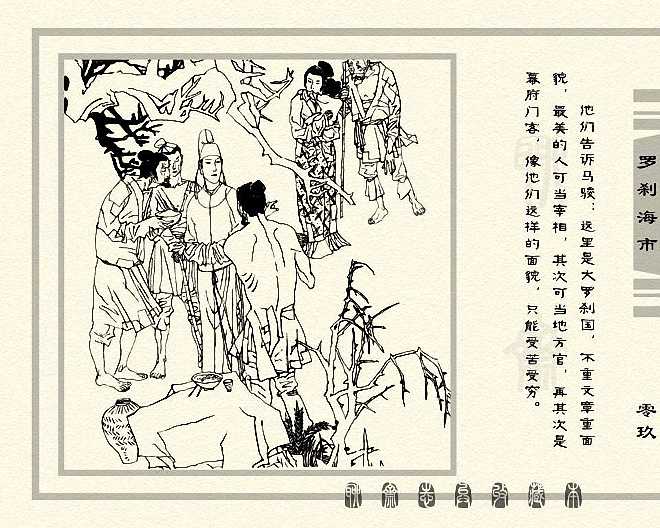 他们告诉马骏：这里是大罗刹国，不重文章重面
貌，最美的人可当宰相，其次可当地方官，再其次是
幕府门客，像他们这样的面貌，只能受苦受穷。
罗刹海市
零玖